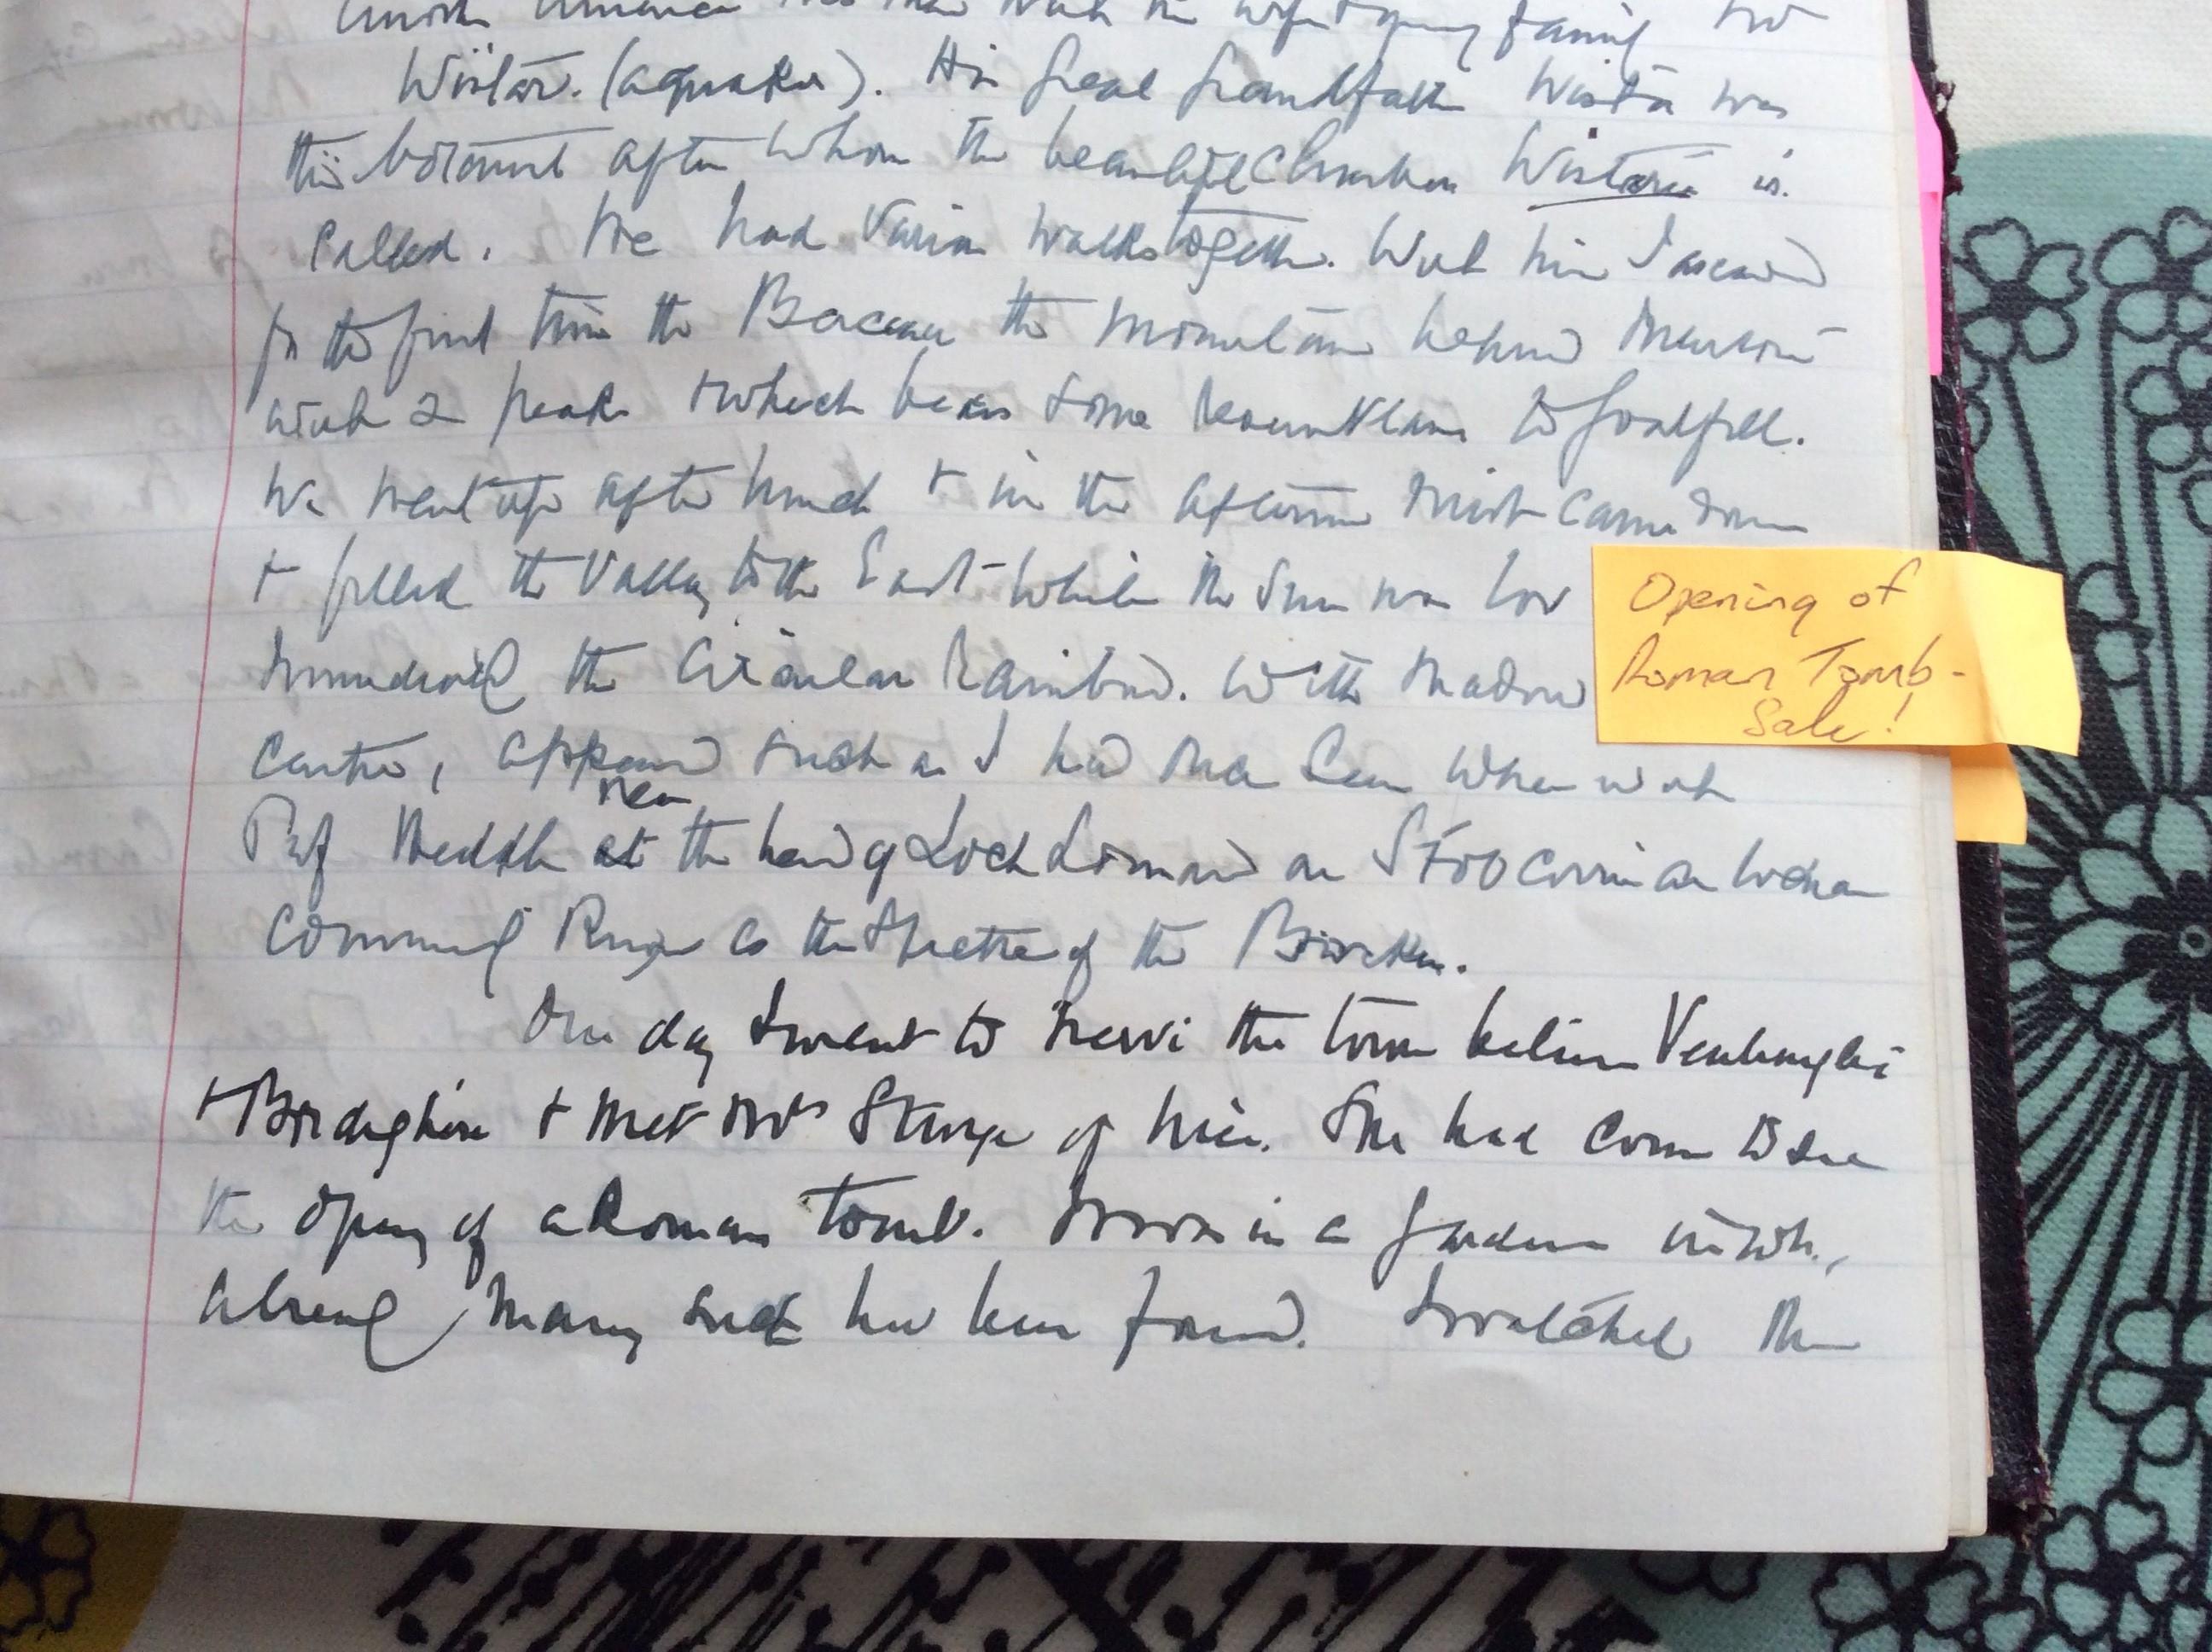 North America
Wistar. (a quaker). His great grandfather Wistar was
the botanist after whom the beautiful climber Wistaria is
called. We had various walks together. With him I ascended
for the first time the Berceau the mountain behind Mentone
with 2 peaks & which bears some resemblance to
We went up after lunch & in the afternoon mist came down
& filled the valley to the East while the sun was low
the circular rainbow. With shadow
centre, appeared such as I had once seen when with
Prof Heddle near the head of Loch Lomond on
Commonly known as the Spectre of the Brocken.
One day I went to Nervi the town between Ventimiglia
& Bordighera & met Mrs Sturge of Nice. She had come to see
the opening of a Roman tomb. down in a garden in wh.,
already many such have been found. I watched the
Opening of
Roman Tomb -
Sale!